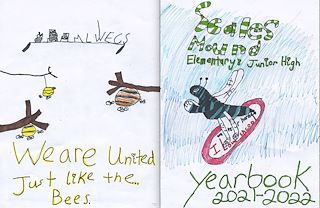 We are United
Just like the...
Bees.
Scales
Mound
Elementary & Junior High
yearbook
2021-2022